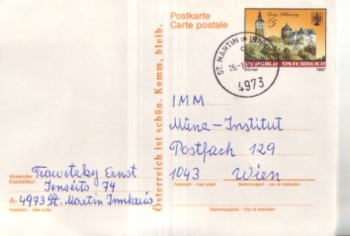 Postkarte
Carte postale
5
REPUBLIK ÖSTERREICH
ST. MARTIN im INNKREIS
4973
Österreich ist schön. Komm, bleib.
IMM
Muna-Institut
Postfach 129
1043 Wien
Postleitzahl - Code postal
Bestimmungsort - Lieu de destination
Absender
Expéditeur:
Trawetzky Ernst
Jenseits 74
A-4973 St. Martin Innkreis
Postleitzahl - Code postal
Bestimmungsland - Pays de destination